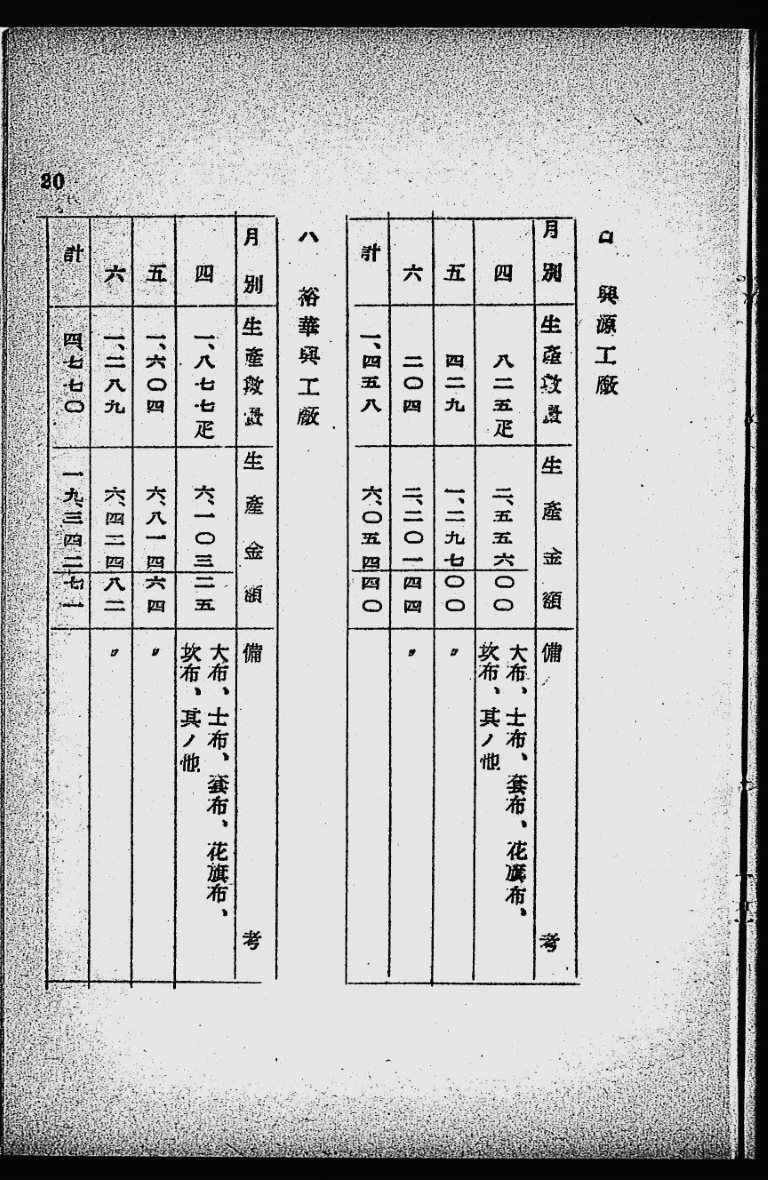 20
ロ 興源工廠
月別 生產數量 生產金額 備考
四 八二五疋 二、五五六〇〇 大布、士布、套布、花旗布、
坎布、其ノ他
五 四二九 一、二九七〇〇 〃
六 二〇四 二、二〇一四四 〃
計 一、四五八 六、〇五四四〇
ハ 裕華興工廠
月別 生產數量 生產金額 備考
四 一、八七七疋 六、一〇三二五 大布、士布、套布、花旗布、
坎布、其ノ他
五 一、六〇四 六、八一四六四 〃
六 一、二八九 六、四二四八二 〃
計 四、七七〇 一九、三四二七一